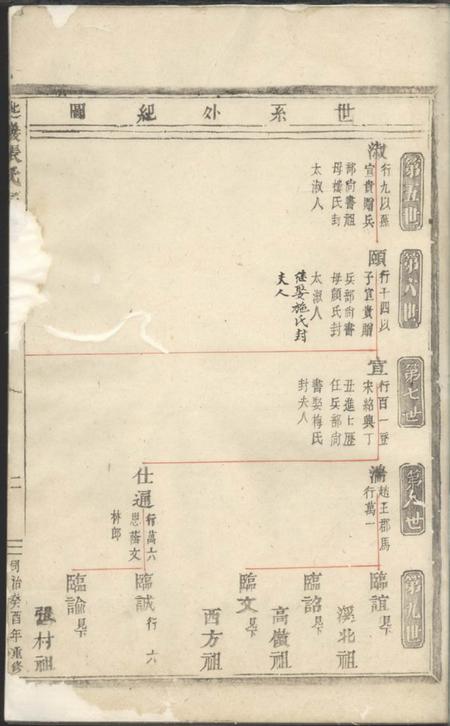 世系外紀圖
第五世
淑
行九以孫
宣貴贈兵
部尚書祖
母樓氏封
太淑人
第六世
頤
行十四以
子宣貴贈
兵部尚書
母顏氏封
太淑人
繼娶施氏封
夫人
第七世
宣
行百一登
宋紹興丁
丑進士歷
任兵部尚
書娶梅氏
封夫人
第八世
趙王郡馬
行萬一
仕通
行萬六
恩蔭文
林郎
第九世
臨誼 見下
溪北祖
臨詔 見下
高儀祖
臨文 見下
西方祖
臨誠 行六
臨論 見下
張村祖
張氏
二
同治癸酉年重修